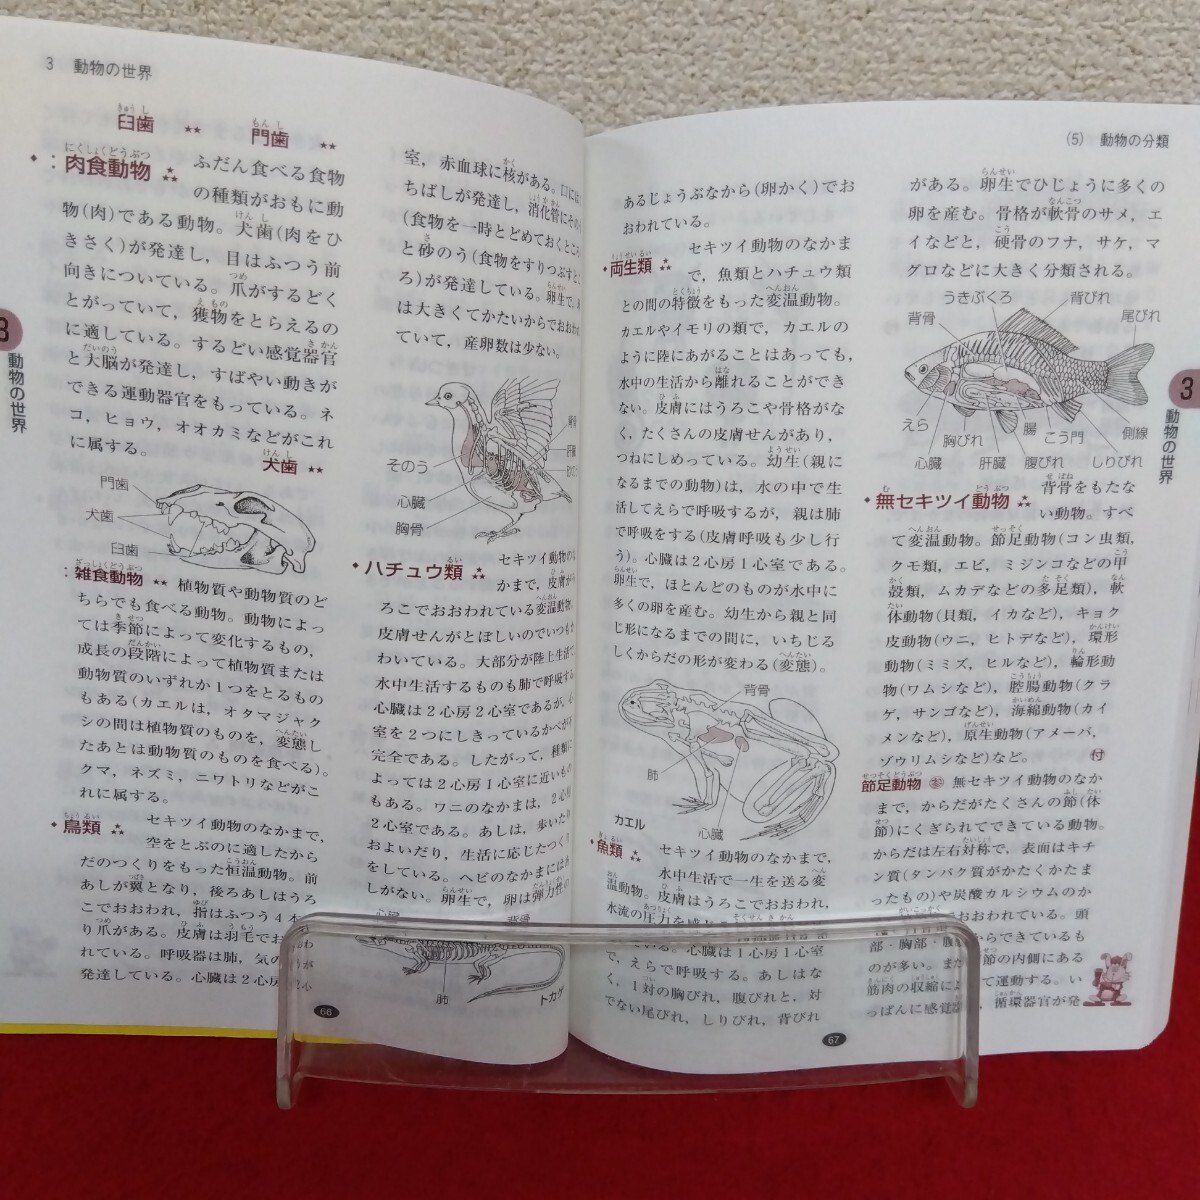 3 動物の世界
臼歯 ★★ 門歯 ★★
肉食動物 ふだん食べる食物
の種類がおもに動
物(肉)である動物。犬歯(肉をひ
きさく)が発達し，目はふつう前
向きについている。爪がするどく
とがっていて，獲物をとらえるの
に適している。するどい感覚器官
と大脳が発達し，すばやい動きが
できる運動器官をもっている。ネ
コ，ヒョウ，オオカミなどがこれ
に属する。 犬歯 ★★
門歯
犬歯
臼歯
雑食動物 ★★ 植物質や動物質のど
ちらでも食べる動物。動物によっ
ては季節によって変化するもの，
成長の段階によって植物質または
動物質のいずれか1つをとるもの
もある(カエルは，オタマジャク
シの間は植物質のものを，変態し
たあとは動物質のものを食べる)。
クマ，ネズミ，ニワトリなどがこ
れに属する。
鳥類 セキツイ動物のなかまで，
空をとぶのに適したから
だのつくりをもった恒温動物。前
あしが翼となり，後ろあしはうろ
こでおおわれ，指はふつう4本
り爪がある。皮膚は羽毛でおおわ
れている。呼吸器は肺，気の
発達している。心臓は2心房2心
室，赤血球に核がある。口には
ちばしが発達し，消化管にその
(食物を一時とどめておくところ
と砂のう(食物をすりつぶすとこ
ろ)が発達している。卵生で，
は大きくてかたいからでおおわ
ていて，産卵数は少ない。
そのう
心臓
胸骨
肝臓
ハチュウ類 セキツイ動物のな
かまで，皮膚がう
ろこでおおわれている変温動物。
皮膚せんがとぼしいのでいつもか
わいている。大部分が陸上生活で
水中生活するものも肺で呼吸する
心臓は2心房2心室であるが，心
室を2つにしきっているかべが不
完全である。したがって，種類に
よっては2心房1心室に近いもの
もある。ワニのなかまは，2心房
2心室である。あしは，歩いたり
およいだり，生活に応じたつくり
をしている。ヘビのなかまにはあ
しがない。卵生で，卵は弾力性の
心臓 背骨
肺
トカゲ
66
(5) 動物の分類
あるじょうぶなから(卵かく)でお
おわれている。
両生類 セキツイ動物のなかま
で，魚類とハチュウ類
との間の特徴をもった変温動物。
カエルやイモリの類で，カエルの
ように陸にあがることはあっても，
水中の生活から離れることができ
ない。皮膚にはうろこや骨格がな
く，たくさんの皮膚せんがあり，
つねにしめっている。幼生(親に
なるまでの動物)は，水の中で生
活してえらで呼吸するが，親は肺
で呼吸をする(皮膚呼吸も少し行
う)。心臓は2心房1心室である。
卵生で，ほとんどのものが水中に
多くの卵を産む。幼生から親と同
じ形になるまでの間に，いちじる
しくからだの形が変わる(変態)。
背骨
肺
カエル 心臓
魚類 セキツイ動物のなかまで，
水中生活で一生を送る変
温動物。皮膚はうろこでおおわれ，
水流の圧力を感じ
いる。心臓は1心房1心室
で，えらで呼吸する。あしはな
く，1対の胸びれ，腹びれと，対
でない尾びれ，しりびれ，背びれ
がある。卵生でひじょうに多くの
卵を産む。骨格が軟骨のサメ，エ
イなどと，硬骨のフナ，サケ，マ
グロなどに大きく分類される。
うきぶくろ 背びれ
背骨 尾びれ
えら 胸びれ 腸 こう門 側線
心臓 肝臓 腹びれ しりびれ
無セキツイ動物 背骨をもたな
い動物。すべ
て変温動物。節足動物(コン虫類，
クモ類，エビ，ミジンコなどの甲
殻類，ムカデなどの多足類)，軟
体動物(貝類，イカなど)，キョク
皮動物(ウニ，ヒトデなど)，環形
動物(ミミズ，ヒルなど)，輪形動
物(ワムシなど)，腔腸動物(クラ
ゲ，サンゴなど)，海綿動物(カイ
メンなど)，原生動物(アメーバ，
ゾウリムシなど)など。 付
節足動物 参 無セキツイ動物のなか
まで，からだがたくさんの節(体
節)にくぎられてできている動物。
からだは左右対称で，表面はキチ
ン質(タンパク質がかたくかたま
ったもの)や炭酸カルシウムのか
おおわれている。頭
部・胸部・腹 からできているも
のが多い。また 節の内側にある
筋肉の収縮によ て運動する。い
っぱんに感覚 ，循環器官が発
67
3 動物の世界
3 動物の世界